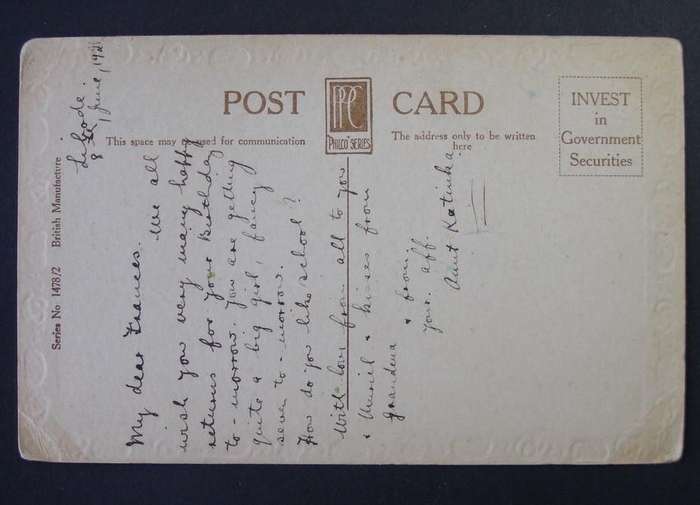 POST CARD
PPC
"PHILCO" SERIES
INVEST
in
Government
Securities
This space may be used for communication
The address only to be written
here
Series No 1478/2 British Manufacture
Libode.
8 June, 192
My dear Frances. We all
wish you very many happy
returns for your Birthday
to-morrow. You are getting
quite a big girl, fancy
seven to-morrow.
How do you like school?
With love from all to you
& Muriel & kisses from
grandma & from
your aff.
Aunt Katinka.